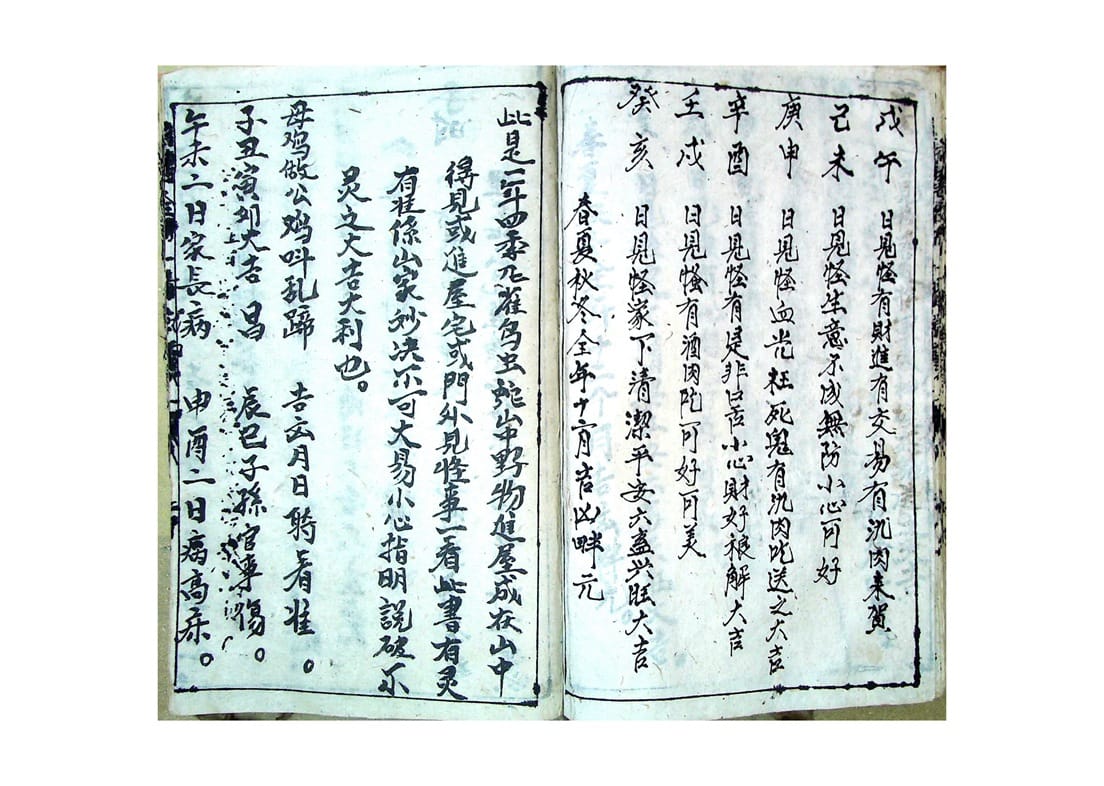 戊午 日見怪有財進有交易有氿肉来贺
己未 日見怪生意不成無防小心可好
庚申 日見怪血光枉死鬼有氿肉吃送之大吉
辛酉 日見怪有是非口舌小心財好禳解大吉
壬戌 日見怪有酒肉吃可好可美
癸亥 日見怪家下清潔平安六畜兴旺大吉
春夏秋冬全年十二月吉凶畔元
此是一年四季飞雀鸟虫蛇山中野物進屋或在山中
得見或進屋宅或門外見怪事一看此書有灵
有准係山家妙决不可大易小心指明説破不
灵之大吉大利也。
母鸡做公鸡叫乱蹄 吉凶月日時看准。
子丑寅卯大吉昌 辰巳子孫官事傷。
午未二日家長病 申酉二日病高床。